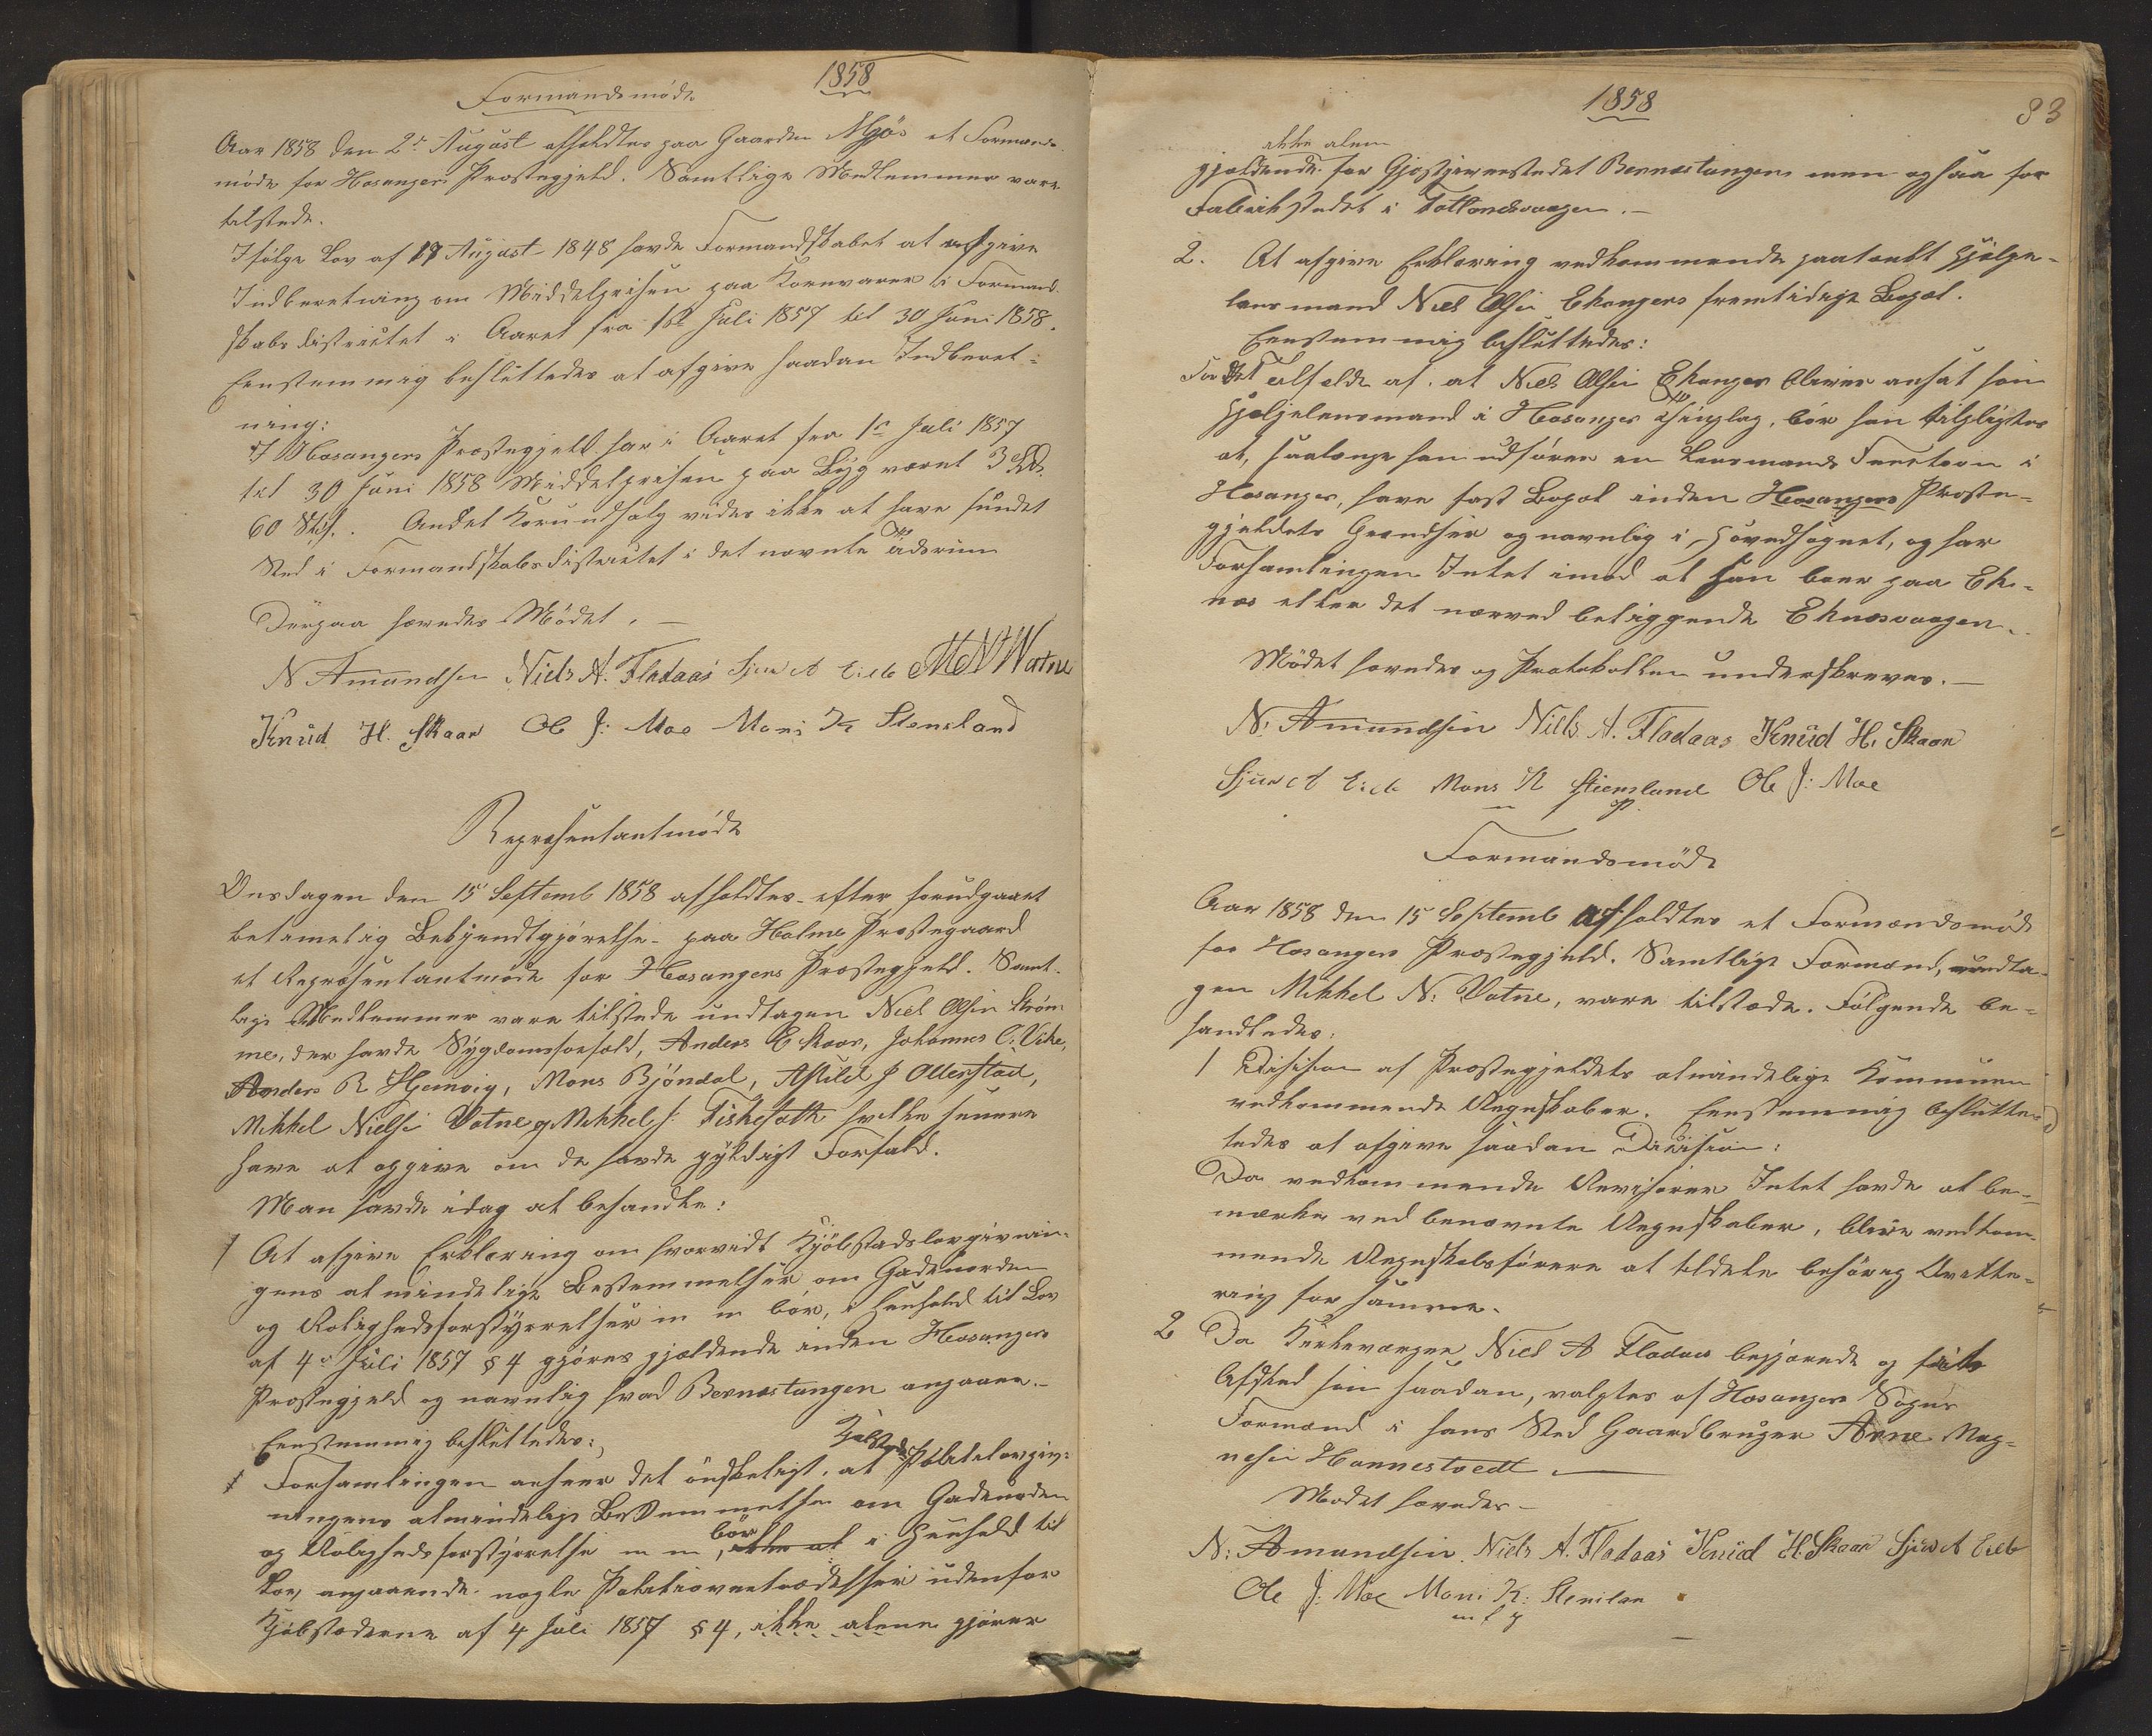 1858
Formandsmøde
Aar 1858 den 2den August afholdtes paa Gaarden Mjøs et Formands-
møde for Hosangers Præstegjeld. Samtlige Medlemmer vare
tilstede.
Ifølge Lov af 17 August 1848 havde Formandskabet at afgive
Indberetning om Middelprisen paa Kornvarer i Formand-
skabsdistrictet i Aaret fra 1ste Juli 1857 til 30 Juni 1858.
Eenstemmig besluttedes at afgive saadan Indberet-
ning:
I Hosangers Præstegjeld har i Aaret fra 1ste Juli 1857
til 30 Juni 1858 Middelprisen paa Byg været 3 Spd.
60 Skil. Andet Kornudsalg vides ikke at have fundet
Sted i Formandskabsdistrictet i det nævnte Tidsrum
Derpaa hævedes Mødet. —
N Amundsen Niels A. Fladaas Sjur A Eide M N Watne
Knud H. Skaar Ole J: Moe Mons K Stensland
Repræsentantmøde
Onsdagen den 15 Septemb 1858 afholdtes efter forudgaaet
betimelig Bekjendtgjørelse paa Holme Præstegaard
et Repræsentantmøde for Hosangers Præstegjeld. Samt-
lige Medlemmer vare tilstede undtagen Niels Olsen Strøm-
me, der havde Sygdomsforfald, Anders E Skaar, Johannes O: Vike,
Anders R Hjemvig, Mons Bjöndal, Askild J Ollerstad,
Mikkel Nielsen Votne og Mikkel J: Fisketoth hvilke senere
have at opgive om de havde gyldigt Forfald.
Man havde idag at behandle:
1 At afgive Erklæring om hvorvidt Kjøbstadslovgivnin-
gens almindelige Bestemmelser om Gadeuorden
og Rolighedsforstyrrelser m m bør, i Henhold til Lov
af 4de Juli 1857 § 4 gjøres gjældende inden Hosangers
Præstegjeld og navnlig hvad Bernæstangen angaaer.
Eenstemmig besluttedes:
1 Forsamlingen anseer det ønskeligt, at Kjøbstads Politilovgiv-
ningens almindelige Bestemmelser om Gadeuorden
og Rolighedsforstyrrelse m m, bør ikke at i Henhold til
Lov, angaaende nogle Politiovertrædelser udenfor
Kjøbstæderne af 4 Juli 1857 § 4, ikke alene gjøres
1858
83
ikke alene
gjældende for Gjæstgiverstedet Bernæstangen men ogsaa for
Fabrikstedet i Tottlandsvaagen. —
2. At afgive Erklæring vedkommende paatænkt Hjælpe-
lensmand Niels Olsen Ekangers fremtidige Bopæl.
Eenstemmig besluttedes:
For det Tilfælde af, at Niels Olsen Ekanger bliver ansat som
Hjælpelensmand i Hosanger Thinglag, bør han tilpligtes
at, saalænge han udfører en Lensmands Function i
Hosanger, have fast Bopæl inden Hosangers Præste-
gjeldets Grændser og navnlig i Hovedsognet, og har
Forsamlingen Intet imod at han boer paa Ek-
næs eller det nærved beliggende Eknæsvaagen.
Mødet hævedes og Protokollen underskreves. —
N: Amundsen Niels A. Fladaas Knud H. Skaar
Sjur A Eide Mons K Stiensland Ole J: Moe
Formandsmøde
Aar 1858 den 15 Septemb afholdtes et Formandsmøde
for Hosangers Præstegjeld. Samtlige Formænd, undta-
gen Mikkel N: Votne, vare tilstæde. Følgende be-
handledes:
1 Decision af Præstegjeldets almindelige Kommunen
vedkommende Regnskaber. Eenstemmig beslutte
tedes at afgive saadan Decision:
Da vedkommende Revisorer Intet havde at be-
mærke ved benævnte Regnskaber, blive vedkom-
mende Regnskabsførere at tildele behørig Qvitte-
ring for samme.
2 Da Kirkeværgen Niels A Fladaas begjærede og fik
Afsked som saadan, valgtes af Hosangers Sogns
Formænd i hans Sted Gaardbruger Arne Mag-
nesen Hannestvedt. —
Mødet hævedes —
N: Amundsen Niels A. Fladaas Knud H. Skaar Sjur A Eide
Ole J: Moe Mons K: Stenslan
m f p